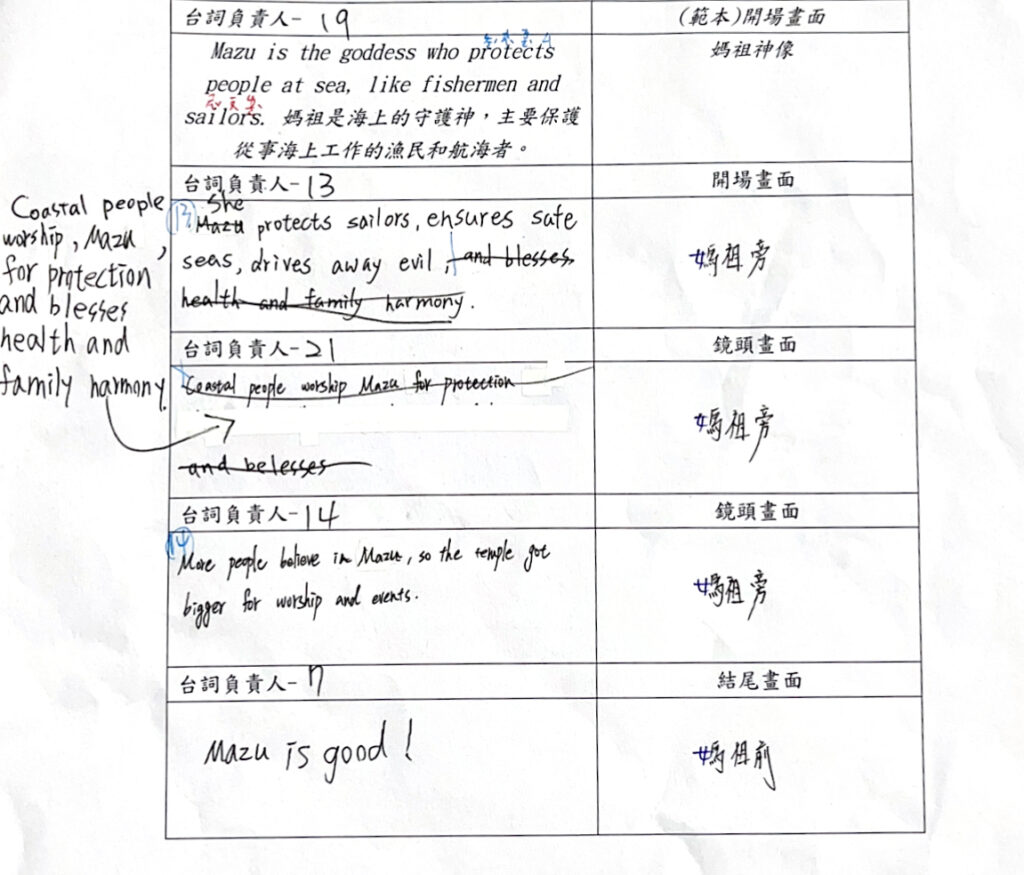 台詞負責人- 19
(範本)開場畫面
Mazu is the goddess who protects
people at sea, like fishermen and
sailors. 媽祖是海上的守護神，主要保護
從事海上工作的漁民和航海者。
媽祖神像
台詞負責人- 13
開場畫面
13.
She
Mazu protects sailors, ensures safe
seas, drives away evil, and blesses
health and family harmony.
媽祖旁
Coastal people
worship, Mazu,
for protection
and blesses
health and
family harmony.
台詞負責人- 21
鏡頭畫面
Coastal people worship Mazu for protection
and belesses
媽祖旁
台詞負責人- 14
鏡頭畫面
14
More people believe in Mazu, so the temple got
bigger for worship and events.
媽祖旁
台詞負責人- 7
結尾畫面
Mazu is good!
媽祖前